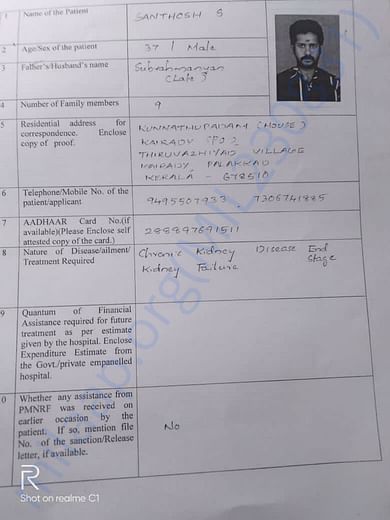 1 Name of the Patient
SANTHOSH S
2 Age/Sex of the patient
37 / Male
3 Father's/Husband's name
Subrahmanyan
(Late)
4 Number of Family members
9
5 Residential address for
correspondence. Enclose
copy of proof.
KUNNATHUPADAM (HOUSE)
KAIRADY (PO),
THIRUVAZHIYAD VILLAGE
PALAKKAD
KERALA - 678510
6 Telephone/Mobile No. of the
patient/applicant
9495507933 7306741885
7 AADHAAR Card No.(if
available)(Please Enclose self
attested copy of the card.)
288897691511
8 Nature of Disease/ailment/
Treatment Required
Chronic Kidney Disease End
Stage
Kidney Failure
9 Quantum of Financial
Assistance required for future
treatment as per estimate
given by the hospital. Enclose
Expenditure Estimate from
the Govt./private empanelled
hospital.
0 Whether any assistance from
PMNRF was received on
earlier occasion by the
patient. If so, mention file
No. of the sanction/Release
letter, if available.
No
R
Shot on realme C1